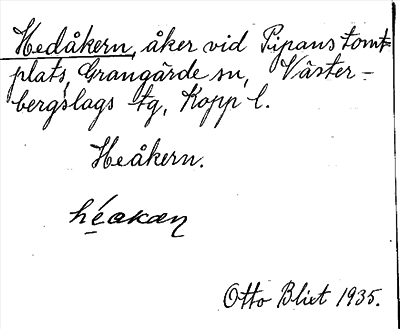 Hedåkern, åker vid Pipans tomt=
plats, Grangärde sn, Väster-
bergslags tg, Kopp l.
Heåkern.
héakaɳ
Otto Blixt 1935.